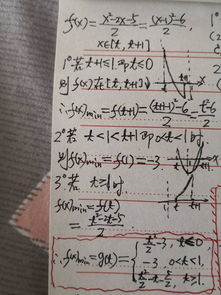 f(x)=\frac{x²-2x-5}{2}=\frac{(x-1)²-6}{2},
x∈[t, t+1]
1° 若 t+1≤1 即 t≤0
则 f(x) 在 [t, t+1] ↓
∴ f(x)min=f(t+1)=\frac{(t+1-1)²-6}{2}=\frac{t²-6}{2}
2° 若 t<1<t+1 即 0<t<1 时
则 f(x)min=f(1)=-3
3° 若 t≥1 时
f(x)min=f(t)
=\frac{t²-2t-5}{2}
∴ f(x)min=g(t)={
\frac{t²}{2}-3, t≤0
-3, 0<t<1,
\frac{t²}{2}-t-\frac{5}{2}, t≥1.